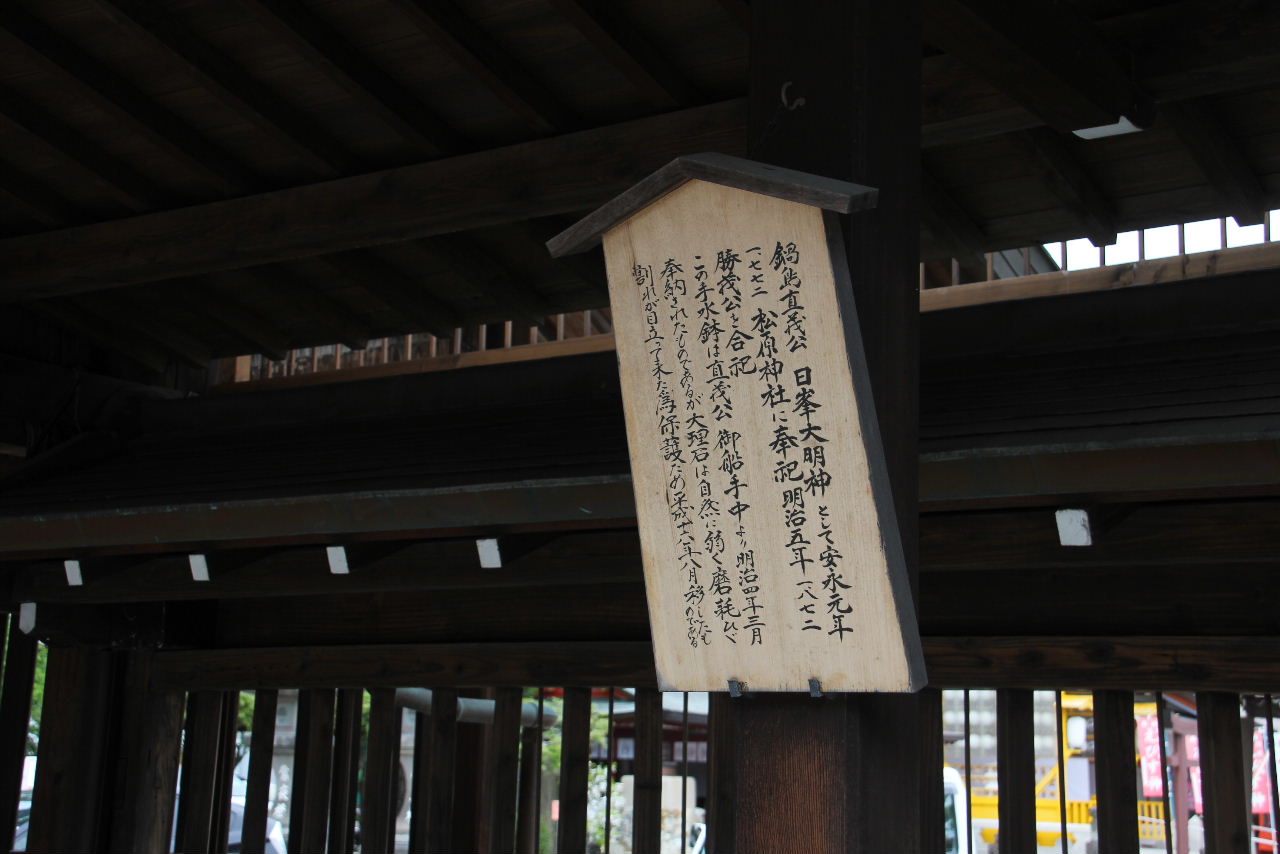 鍋島直茂公 日峯大明神として安永元年
一七七二 松原神社に奉祀明治五年 一八七二
勝茂公を合祀
この手水鉢は直茂公御船手中より明治四年三月
奉納されたものであるが大理石は自然に弱く磨耗ひび
割れが目立って来た為保護だめ平成十六年八月移したものである